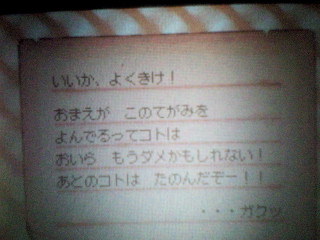 いいか、よくきけ！
おまえが　このてがみを
よんでるってコトは
おいら　もうダメかもしれない！
あとのコトは　たのんだぞー！！
・・・ガクッ